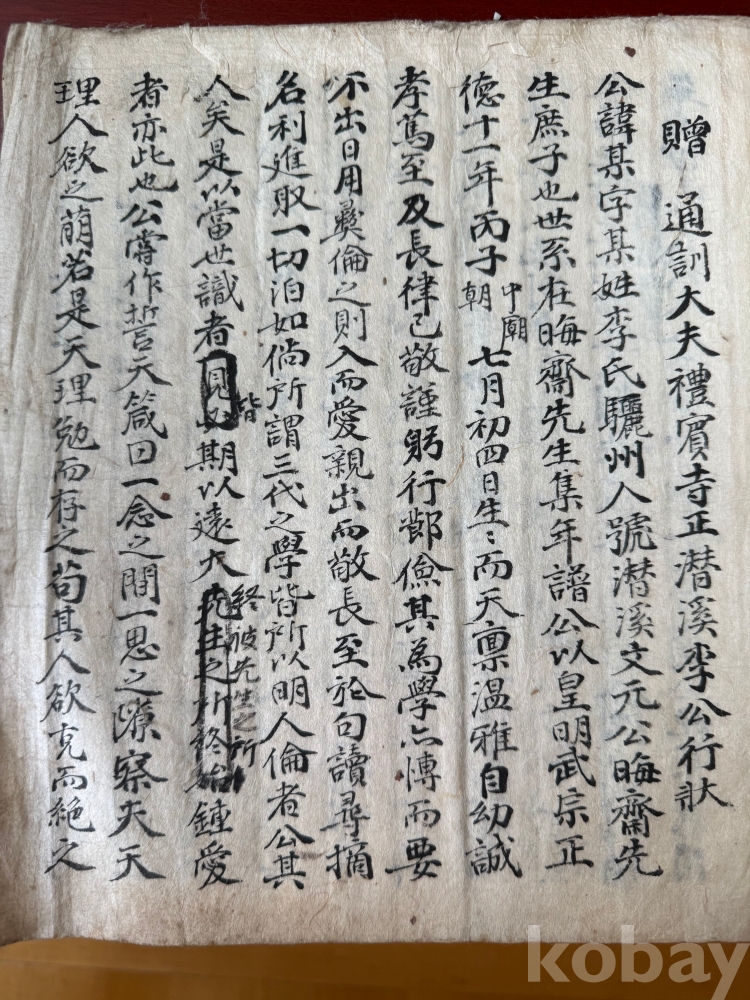 贈 通訓大夫禮賓寺正潛溪李公行狀
公諱某字某姓李氏驪州人號潛溪文元公晦齋先
生庶子也世系在晦齋先生集年譜公以皇明武宗正
德十一年丙子中廟朝七月初四日生〻而天稟溫雅自幼誠
孝篤至及長律己敬謹躬行鄭儉其爲學亦博而要
不出日用彝倫之則入而愛親出而敬長至於句讀尋摘
名利進取一切泊如倘所謂三代之學皆所以明人倫者公其
人矣是以當世識者見皆期以遠大先生之所終始終被先生之所鍾愛
者亦此也公嘗作誓天箴曰一念之間一思之際察夫天
理人欲之萌若是天理勉而存之苟其人欲克而絶之
kobay